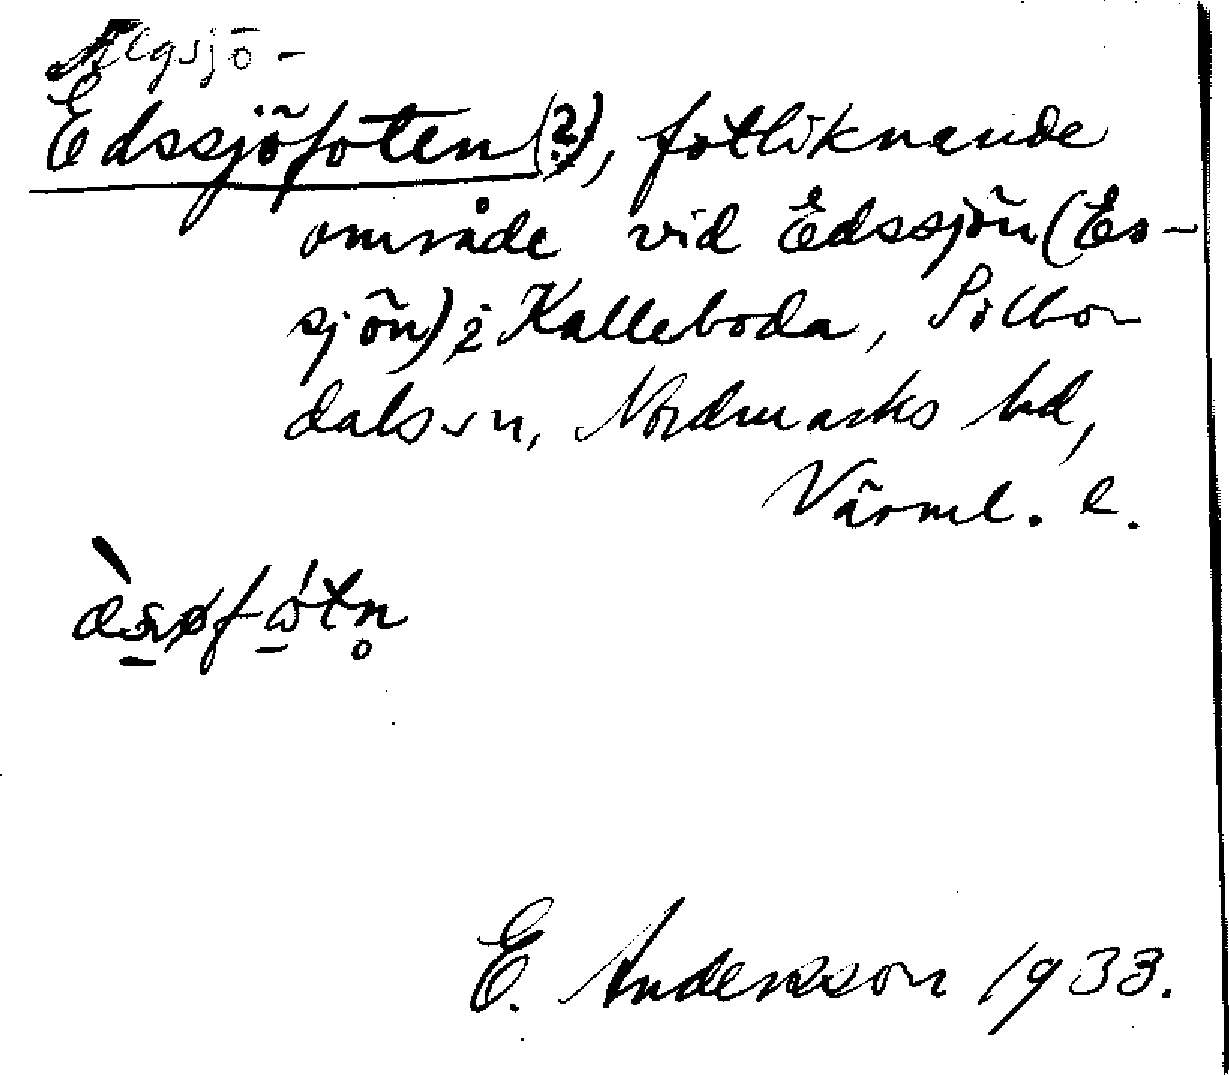 Älgsjö-
Edssjöfoten(?), fotliknande
område vid Edssjön (Es-
sjön) i Kalleboda, Silbo-
dals sn, Nordmarks hd,
Värml. l.
E. Andersson 1933.